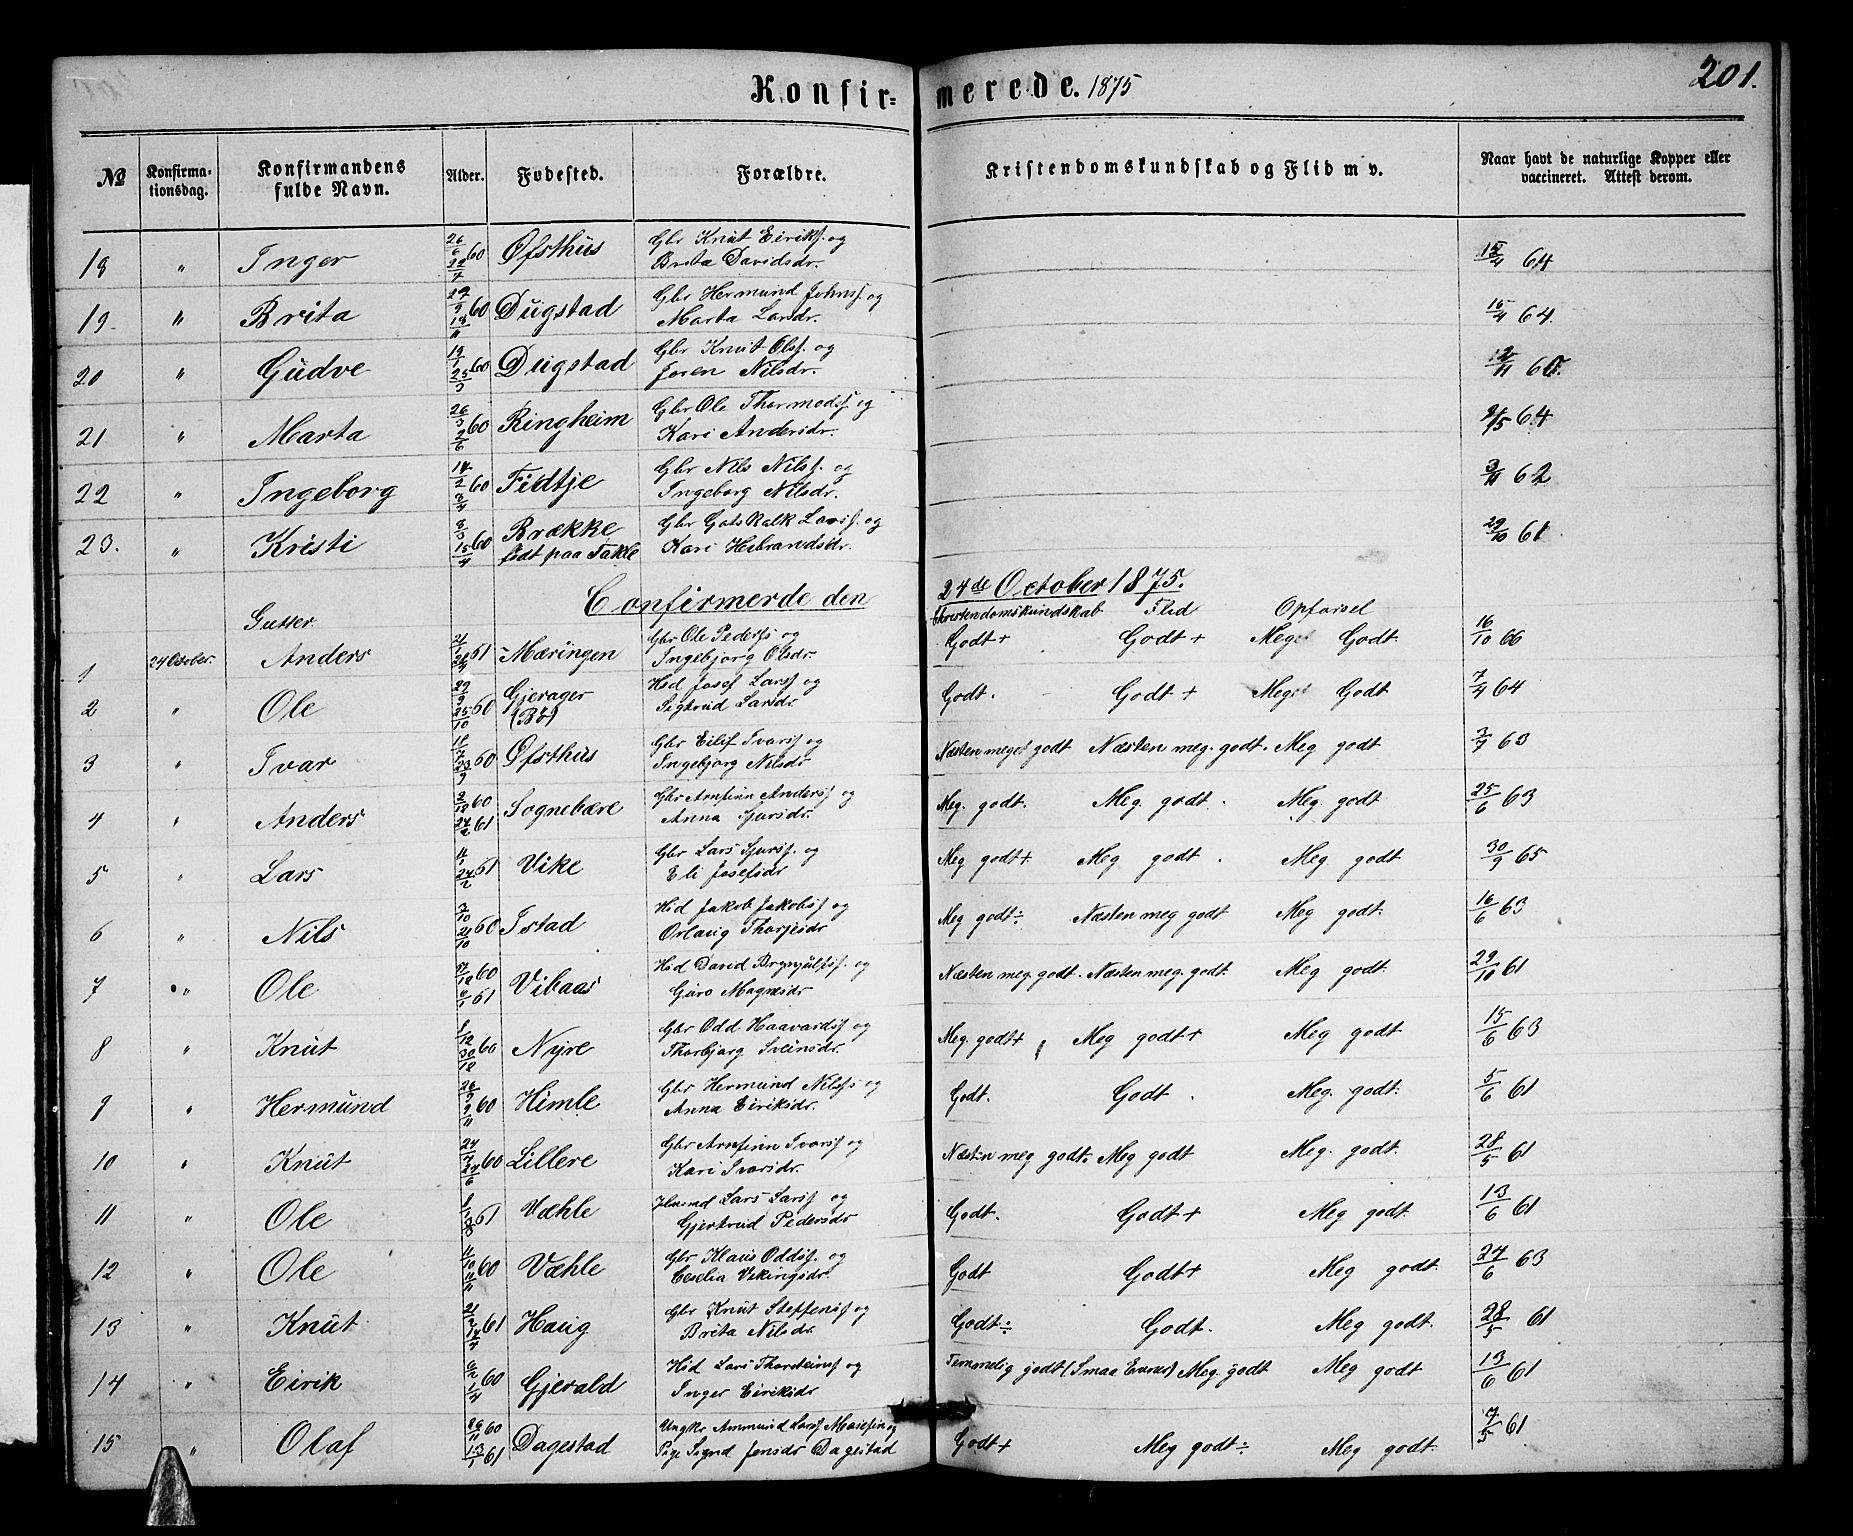 Konfir= merede. 1875 201.
№ Konfirma- tionsdag. Konfirmandens fulde Navn. Alder. Fødested. Forældre. Kristendomskundskab og Flid m v. Naar havt de naturlige Kopper eller vaccineret. Attest derom.
18 " Inger 60 Øfsthus Gbr Knut Eiriks. og Brita Davidsdr. 64
19. " Brita 60 Dugstad Gbr Hermund Johns. og Marta Larsdr. 15/4 64.
20 " Gudve 60 Dugstad Gbr Knut Ols. og Joren Nilsdr.
21 " Marta 60 Ringheim Gbr Ole Thormods. og Kari Andersdr. 64
22 " Ingeborg 60 Fidtje Gbr Nils Nils. og Ingeborg Nilsdr. 62
23. " Kristi 60 Brække født paa Takle Gbr Gotskalk Lars. og Kari Hebrandsdr. 29/10 61
Confirmerde den 24de October 1875.
Gutter. Christendomskundskab Flid Opførsel
1 24 October. Anders 61 Mæringen Gbr Ole Peders. og Ingebjorg Olsdr. Godt+ Godt+ Meget Godt. 16/10 66
2 " Ole 60 Gjerager (Bø) Hsd Josef Lars. og Sigtrud Larsdr. Godt. Godt+ Meget Godt 7/4 64
3 " Ivar 60 Øfsthus Gbr Eilif Ivars. og Ingebjorg Nilsdr Næsten meget godt Næsten meg. godt. Meg godt 63
4 " Anders 60 61 Sognebære Gbr Arnfinn Anders. og Anna Sjursdr. Meg. godt. Meg. godt. Meg. godt 25/6 63
5 " Lars 24/2 61 Vike Gbr Lars Sjurs. og Eli Josefsdr. Meg godt+ Meg godt. Meg godt 30/9 65
6 " Nils 60 Istad Hsd Jakob Jakobs. og Orlaug Thorjesdr Meg godt÷ Næsten meg godt Meg godt. 16/6 63
7 " Ole 60 61 Vibaas Hsd David Brynjulfs. og Guro Magnesdr Næsten meg. godt. Næsten meg. godt. Meg godt 29/10 61
8 " Knut 60 Nyre Gbr Odd Haavards. og Thorbjorg Sveinsdr. Meg. godt+ Meg godt+ Meg godt 15/6 63
9 " Hermund 60 Himle Gbr Hermund Nils. og Anna Eiriksdr. Godt. Godt. Meg. godt. 5/6 61
10 " Knut 60 Lillere Gbr Arnfinn Ivars. og Kari Ivarsdr. Næsten meg godt. Meg godt Meg. godt. 28/5 61
11 " Ole 61 Væhle Lars Lars. og Gjertrud Pedersdr Godt. Godt+ Meg godt. 13/6 61
12 " Ole 60 Væhle Gbr Klaus Odds. og Cecelia Vikingsdr. Godt Godt+ Meg godt. 24/6 63
13 " Knut 61 Haug Gbr Knut Steffens. og Brita Nilsdr. Godt÷ Godt. Meg godt. 28/5 61
14 " Eirik 60 Gjerald Hsd Lars Thorsteins. og Inger Eiriksdr Temmelig godt (Smaa Evner) Meg. godt Meg godt 13/6 61
15 " Olaf 60 61 Dagestad Ungkr Ammund Lars. og Pige Sigrid Jonsdr Dagestad Godt+ Meg godt÷ Meg godt. 7/5 61